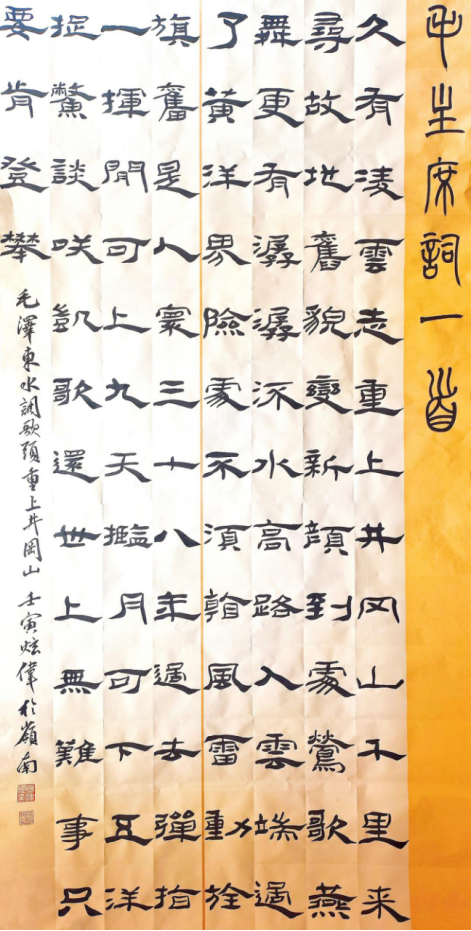 毛主席詞一首
久有凌雲志重上井冈山千里来
尋故地舊貌變新顔到處鶯歌燕
舞更有潺潺流水高路入雲端過
了黄洋界險處不須看風雷動旌
旗奮是人寰三十八年過去彈指
一揮間可上九天攬月可下五洋
捉鱉談咲凱歌還世上無難事只
要肯登攀
毛澤東水調歌頭重上井岡山 壬寅炫偉於嶺南